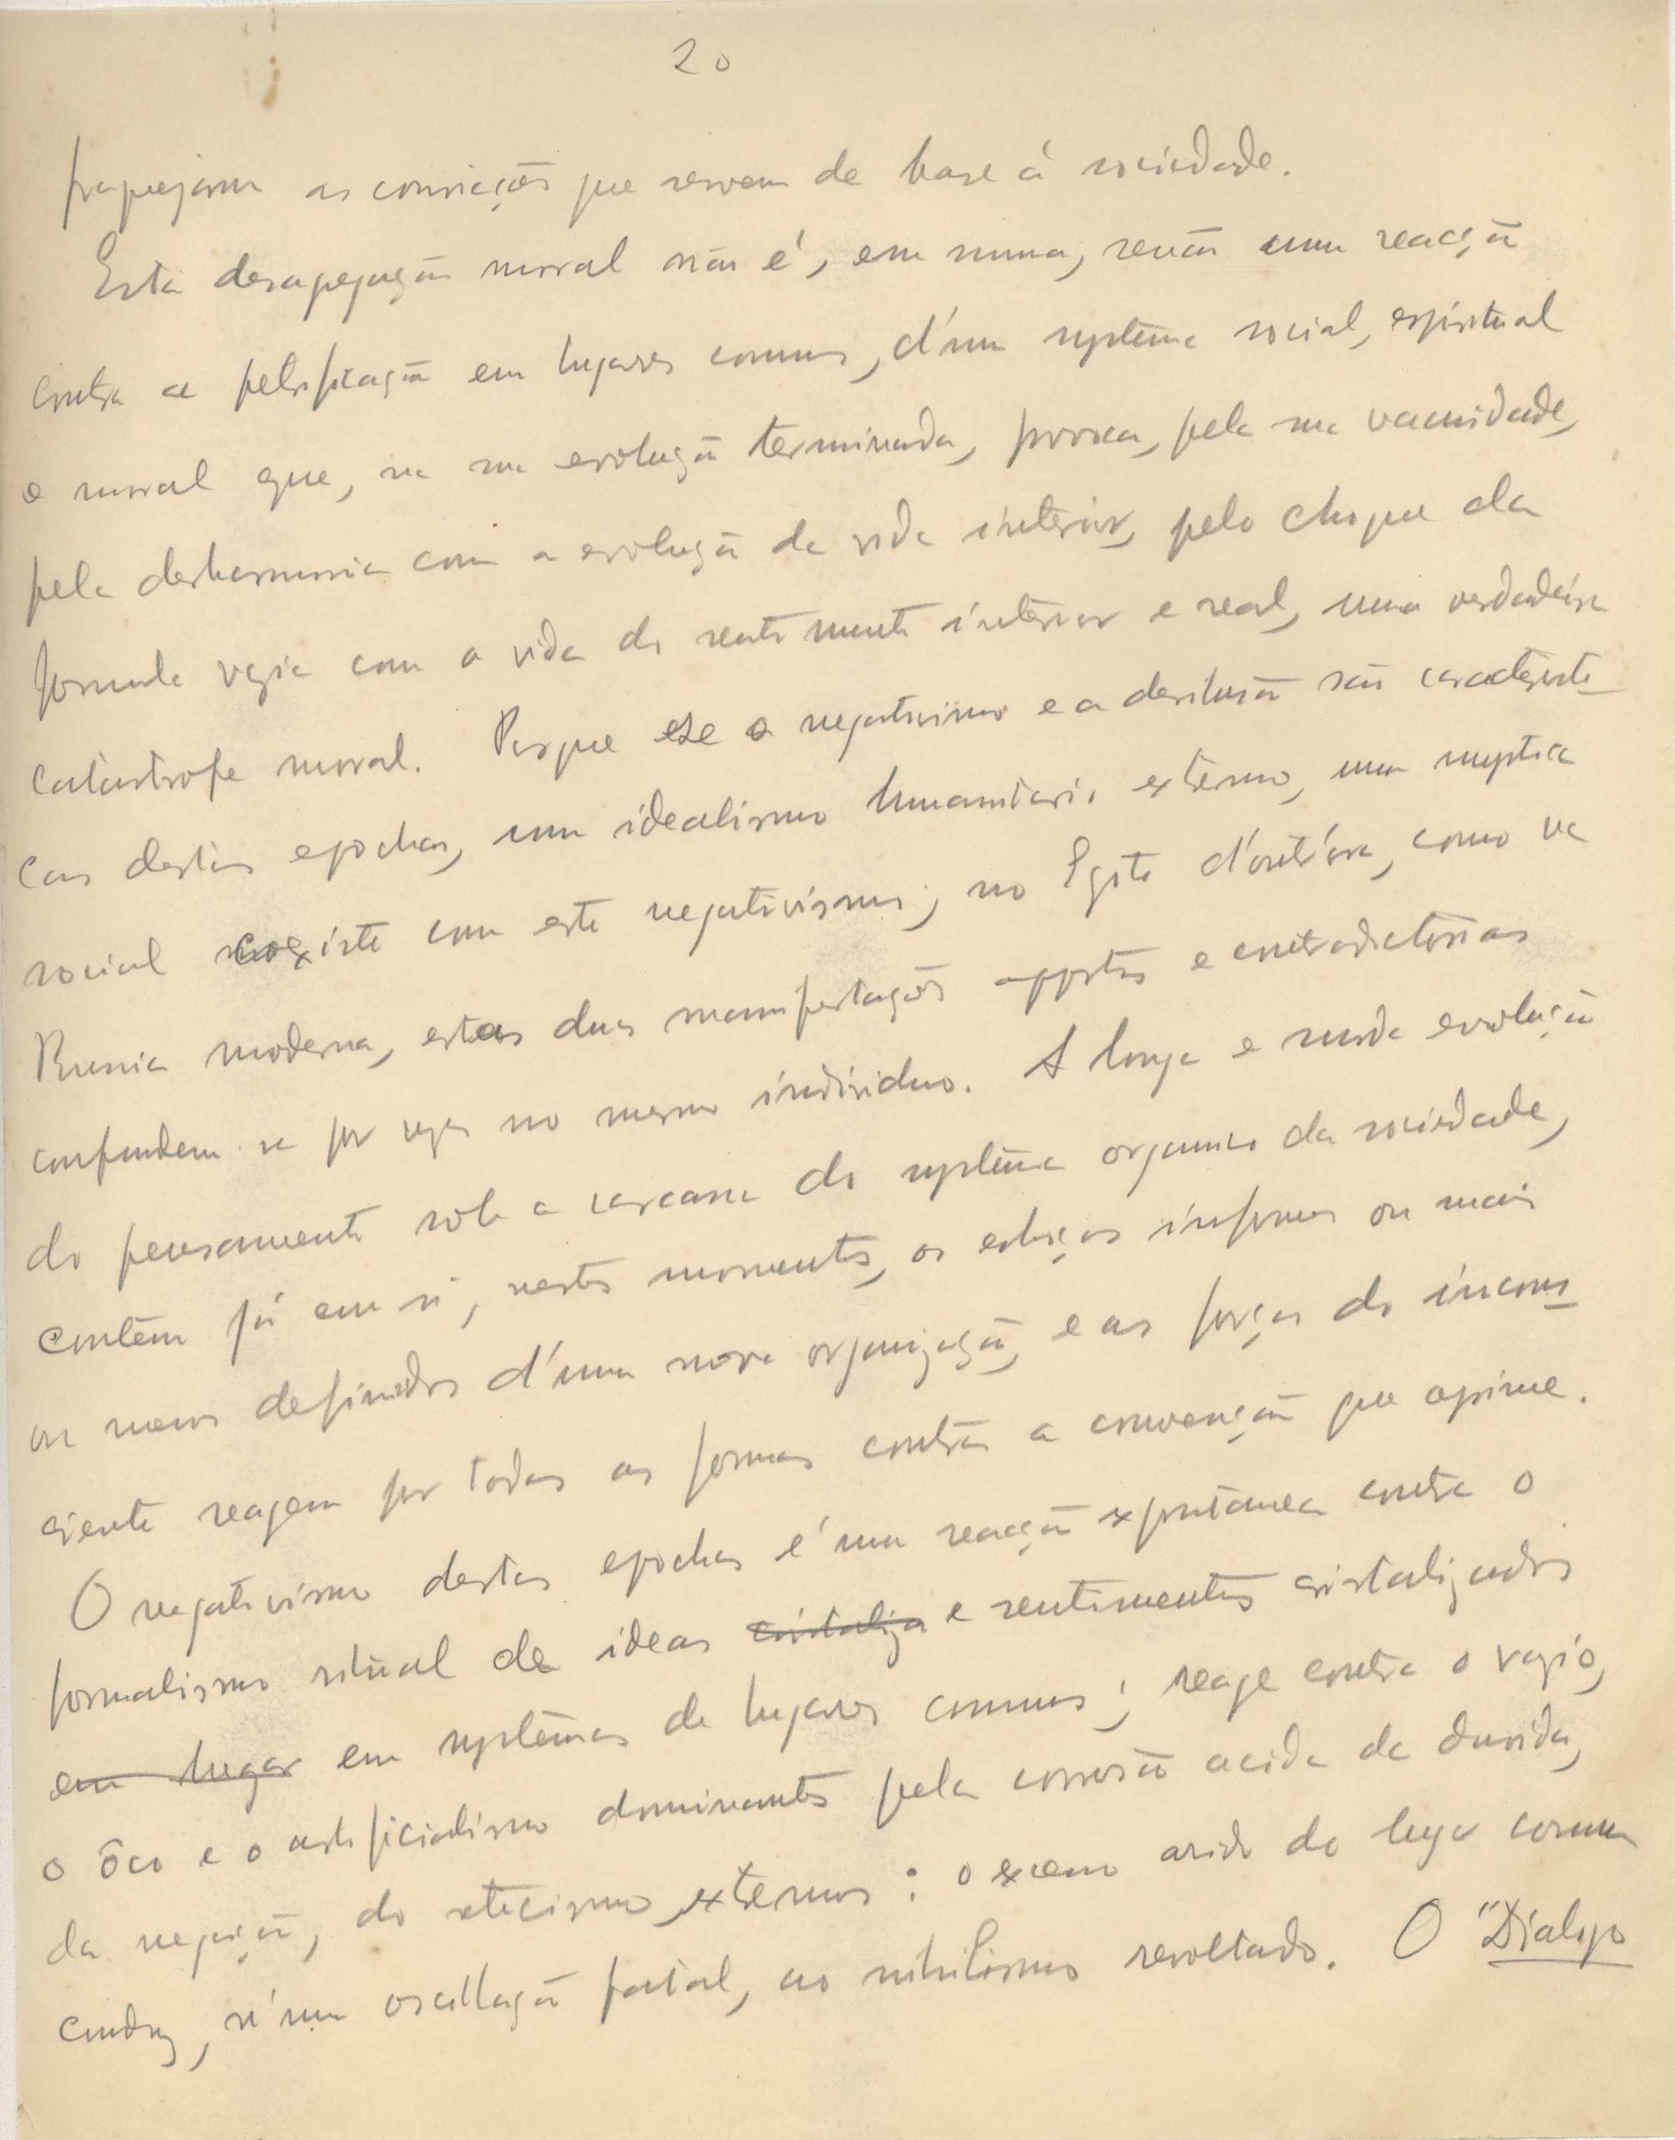 20
fraquejam as convicções que servem de base á sociedade.
Esta desagregação moral não é, em summa, senão uma reacção
contra a petrificação em lugares comuns, d'um systema social, espiritual
e moral que, na sua evolução terminada, provoca, pela sua vacuidade,
pela desharmonia com a evolução da vida interior, pelo choque da
formula vazia com a vida do sentimento interior e real, uma verdadeira
catastrofe moral. Porque se o negativismo e a desilusão são caracteristi
cas destas epochas, um idealismo humanitario extremo, uma mystica
social coexiste com este negativismo; no Egito d'outróra, como na
Russia moderna, estas duas manifestações oppostas e contradictorias
confundem-se por vezes no mesmo individuo. A longa e surda evolução
do pensamento sob a carcassa do systema organico da sociedade,
contêm já em si, nestes momentos, os esboços informes ou mais
ou menos definidos d'uma nova organização, e as forças do incons
ciente reagem por todas as formas contra a convenção que oprime.
O negativismo destas epochas é uma reacção expontanea contra o
formalismo ritual de ideas cristaliza e sentimentos cristalizados
em lugar em systemas de lugares comuns; reage contra o vazio,
o ôco e o artificialismo dominantes pela corrosão acida da duvida,
da negação, do sticismo extremos: o excesso arido do lugar comum
conduz, n'uma oscillação fatal, ao nihilismo revoltado. O "Dialogo